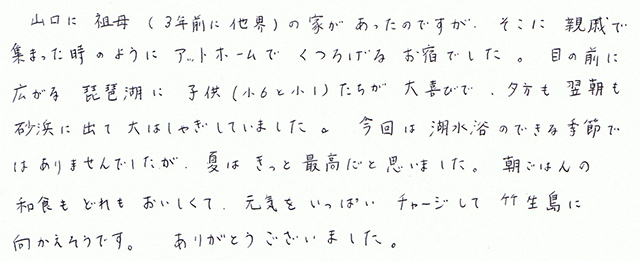 山口に 祖母 (3年前に他界)の家があったのですが、そこに 親戚で
集まった時のように アットホームで くつろげる お宿でした。 目の前に
広がる 琵琶湖に 子供(小6と小1)たちが 大喜びで、夕方も 翌朝も
砂浜に出て 大はしゃぎしていました。 今回は 湖水浴のできる季節で
はありませんでしたが、夏は きっと 最高だと思いました。 朝ごはんの
和食も どれも おいしくて、元気を いっぱい チャージして 竹生島に
向かえそうです。 ありがとうございました。